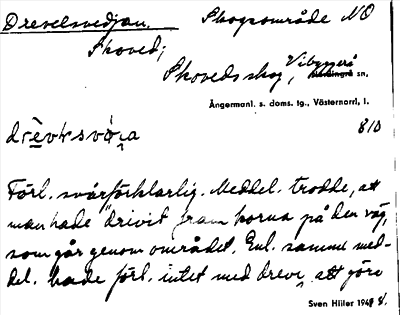 Drevelsvedjan. Skogsområde NO
Skoved;
Skovedsskog, Vibyggerå
sn,
Ångermanl. s. doms. tg., Västernorrl. l.
810
Förl. svårförklarlig. Meddel. trodde, att
man hade "drivit fram korna på den väg,
som går genom området. Enl. samme med-
del. hade förl. intet med dreve att göra
Sven Hiller 1948.